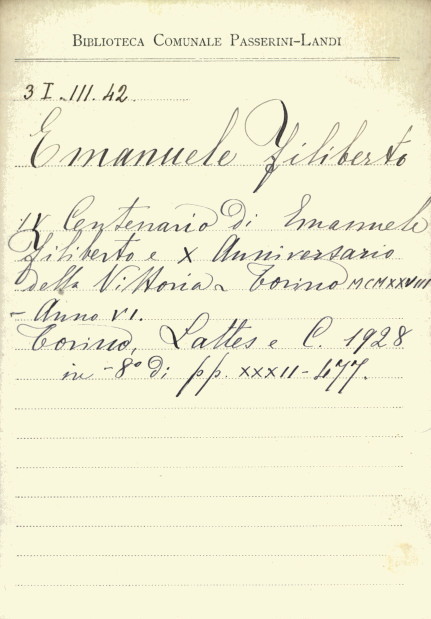 BIBLIOTECA COMUNALE PASSERINI-LANDI
3 I.III.42.
Emanuele Filiberto
IV Centenario di Emanuele
Filiberto e X Anniversario
della Vittoria - Torino MCMXXVIII
- Anno VI.
Torino, Lattes e C. 1928
in-8° di pp. XXXII-477.